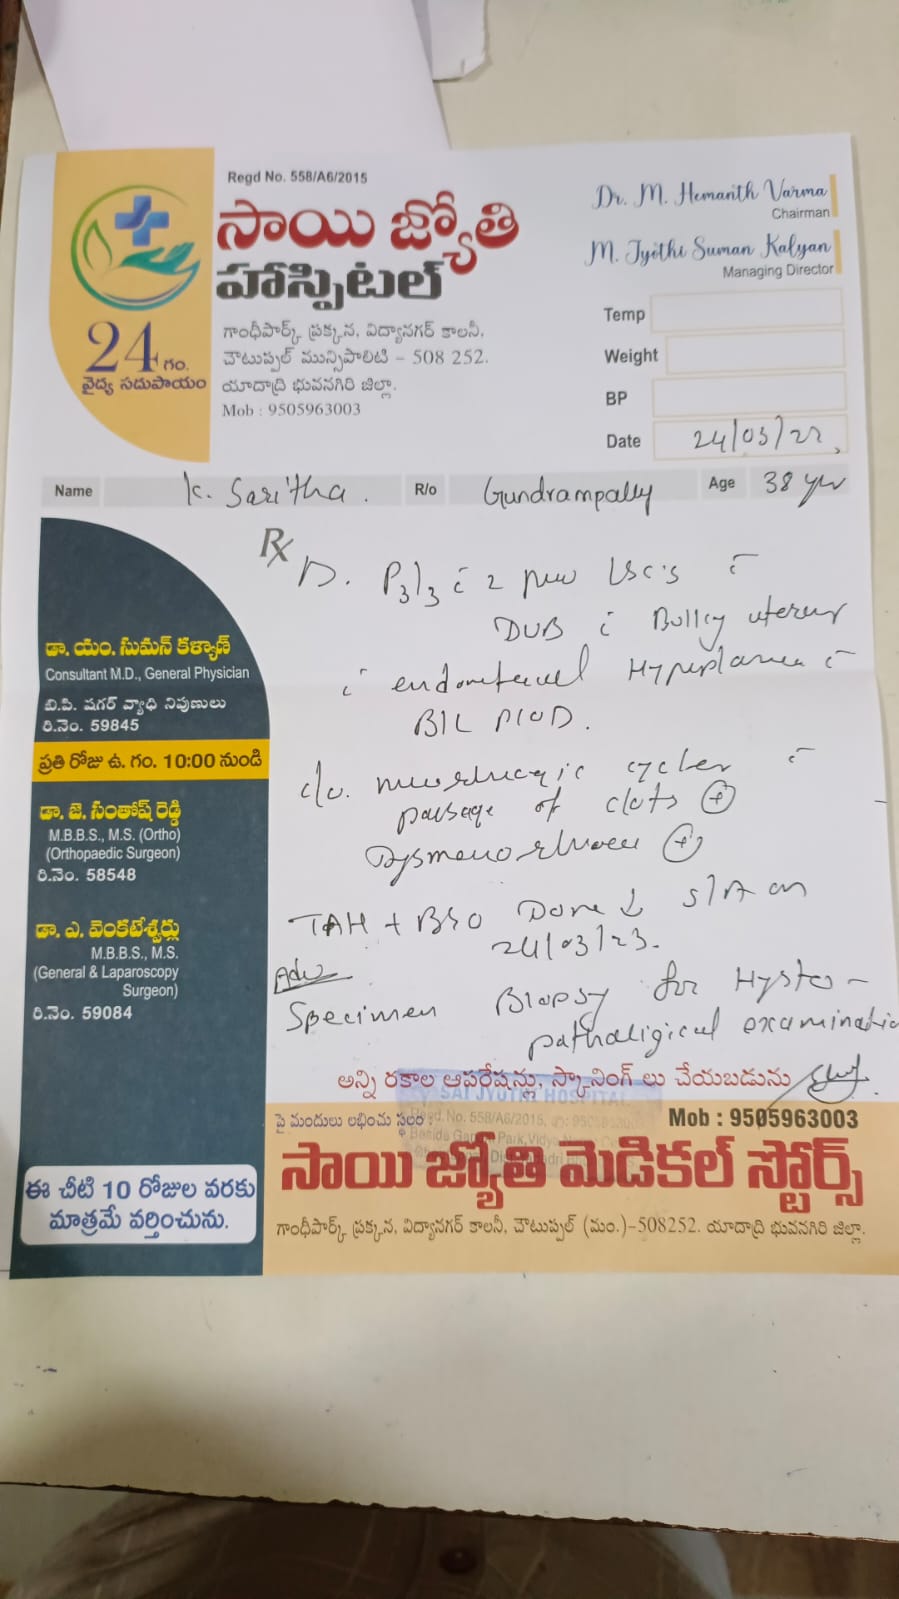 Regd No. 558/A6/2015
సాయి జ్యోతి
హాస్పిటల్
24 గం.
వైద్య సదుపాయం
గాంధీపార్క్ ప్రక్కన, విద్యానగర్ కాలనీ,
చౌటుప్పల్ మున్సిపాలిటి - 508 252.
యాదాద్రి భువనగిరి జిల్లా.
Mob : 9505963003
Dr. M. Hemanth Varma
Chairman
M. Jyothi Suman Kalyan
Managing Director
Temp
Weight
BP
Date 24/03/23
Name K. Saritha. R/o Gundrampally Age 38 yrs
Rx
D. P3L3 c 2 prev LSCS c
DUB c Bulky uterus
c endometrial Hyperplasia c
B/L PCOD.
c/o. menorrhagic cycles c
passage of clots (+)
Dysmenorrhoea (+)
TAH + BSO Done ↓ S/A on
24/03/23.
Adv
Specimen Biopsy for Hysto-
pathaligical examination
డా. యం. సుమన్ కళ్యాణ్
Consultant M.D., General Physician
బి.పి. షుగర్ వ్యాధి నిపుణులు
రి.నెం. 59845
ప్రతి రోజు ఉ. గం. 10:00 నుండి
డా. జె. సంతోష్ రెడ్డి
M.B.B.S., M.S. (Ortho)
(Orthopaedic Surgeon)
రి.నెం. 58548
డా. ఎ. వెంకటేశ్వర్లు
M.B.B.S., M.S.
(General & Laparoscopy
Surgeon)
రి.నెం. 59084
ఈ చీటి 10 రోజుల వరకు
మాత్రమే వర్తించును.
అన్ని రకాల ఆపరేషన్లు, స్కానింగ్ లు చేయబడును
SAI JYOTHI HOSPITAL
Regd. No. 558/A6/2015,
పై మందులు లభించు స్థలం :
Mob : 9505963003
సాయి జ్యోతి మెడికల్ స్టోర్స్
గాంధీపార్క్ ప్రక్కన, విద్యానగర్ కాలనీ, చౌటుప్పల్ (మం.)-508252. యాదాద్రి భువనగిరి జిల్లా.